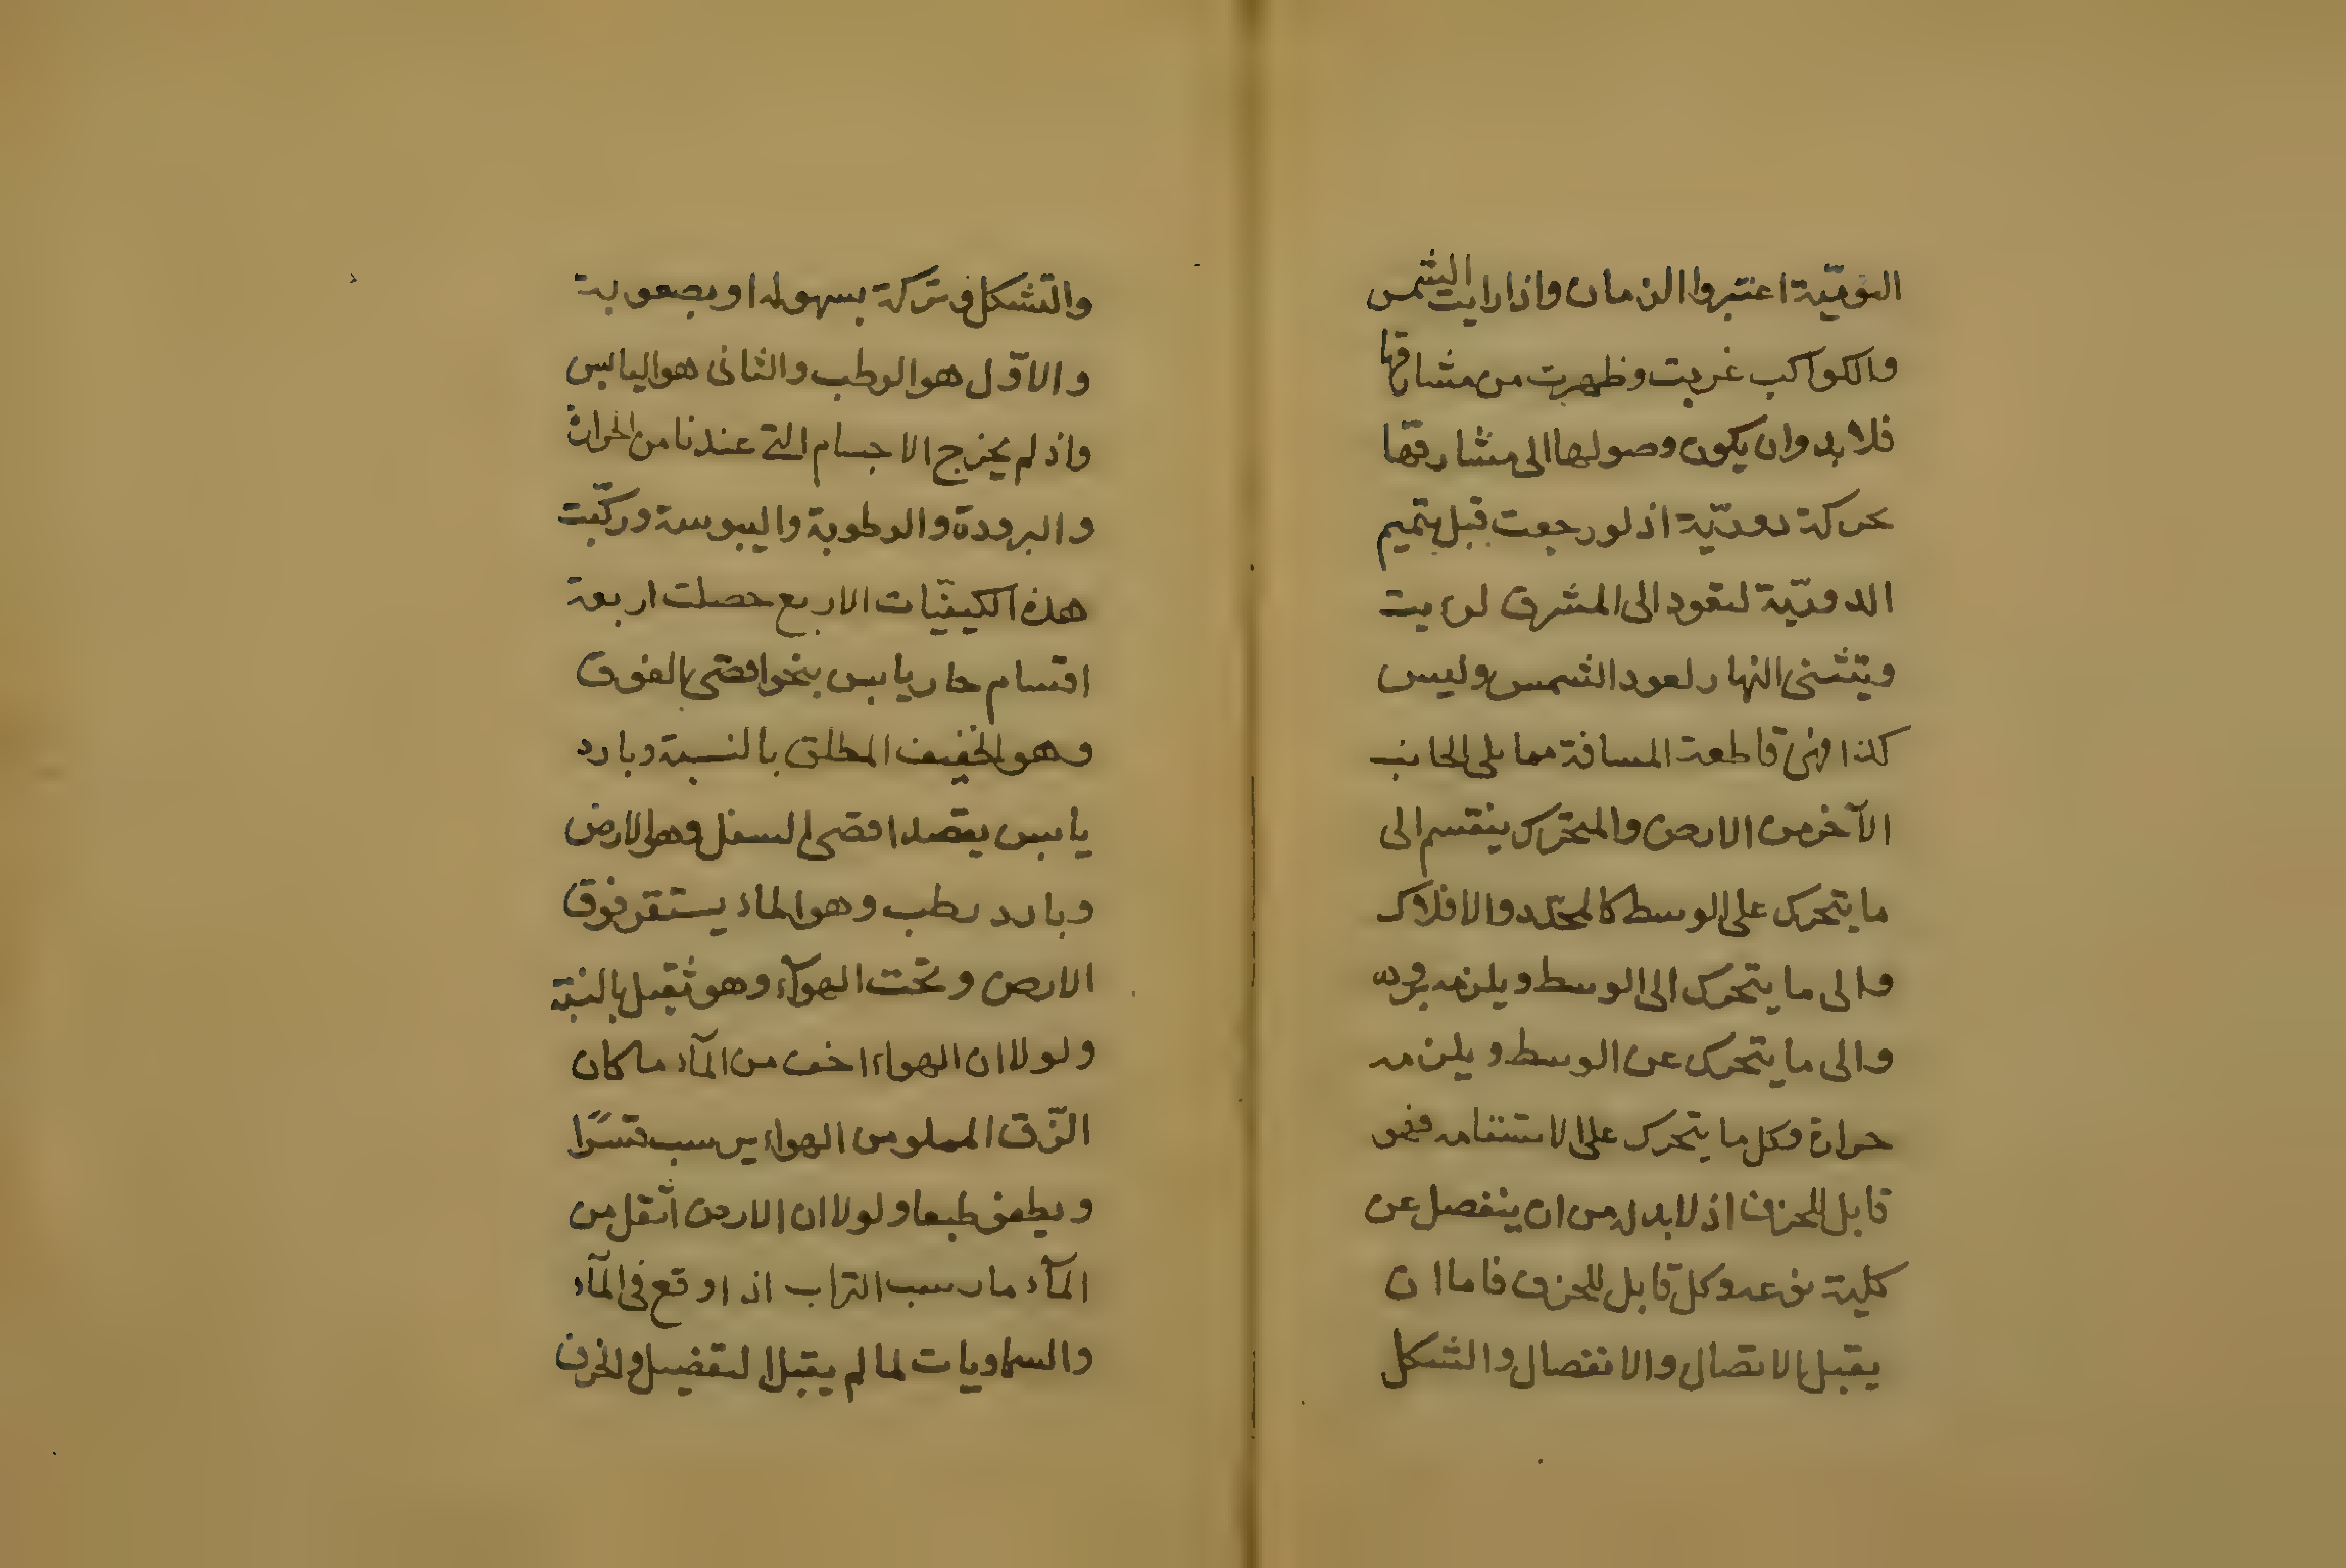 اليوميّة اعتبروا الزمان واذا رايت الشمس
والكواكب غربت وظهرت من مشارقها
فلا بد وان يكون وصولها الى مشارقها
بحركة دوريّة اذ لو رجعت قبل تتميم
الدوريّة لتعود الى المشرق لرايت
ويتثنى النهار لعود الشمس وليس
كذا فهى قاطعة المسافة مما يلى الجانب
الآخر من الارض والمتحرّك ينقسم الى
ما يتحرك على الوسط كالمحدّد والافلاك
والى ما يتحرك الى الوسط ويلزمه برودة
والى ما يتحرك عن الوسط ويلزمه
حرارة وكل ما يتحرك على الاستقامه فهو
قابل للخرق اذ لا بد له من ان ينفصل عن
كلية نوعه وكل قابل للخرق فاما ان
يقبل الاتصال والانفصال والتشكل
والتشكل وتركه بسهولة او بصعوبة
والاوّل هو الرطب والثانى هو اليابس
واذ لم يخرج الاجسام التى عندنا من الحرارة
والبرودة والرطوبة واليبوسة وركّبت
هذه الكيفيّات الاربع حصلت اربعة
اقسام حار يابس ينحو اقصى الفوق
وهو الخفيف المطلق بالنسبة وبارد
يابس يقصد اقصى السفل وهو الارض
وبارد رطب وهو الماء يستقر فوق
الارض وتحت الهوآء وهو ثقيل بالنسبة
ولولا ان الهواء اخف من المآء ما كان
الزّق المملو من الهواء يرسب قسرًا
ويطفو طبعا ولولا ان الارض اثقل من
المآء ما رسب التراب اذا وقع فى المآء
والسماويات لما لم يقبل التفصيل والخرق